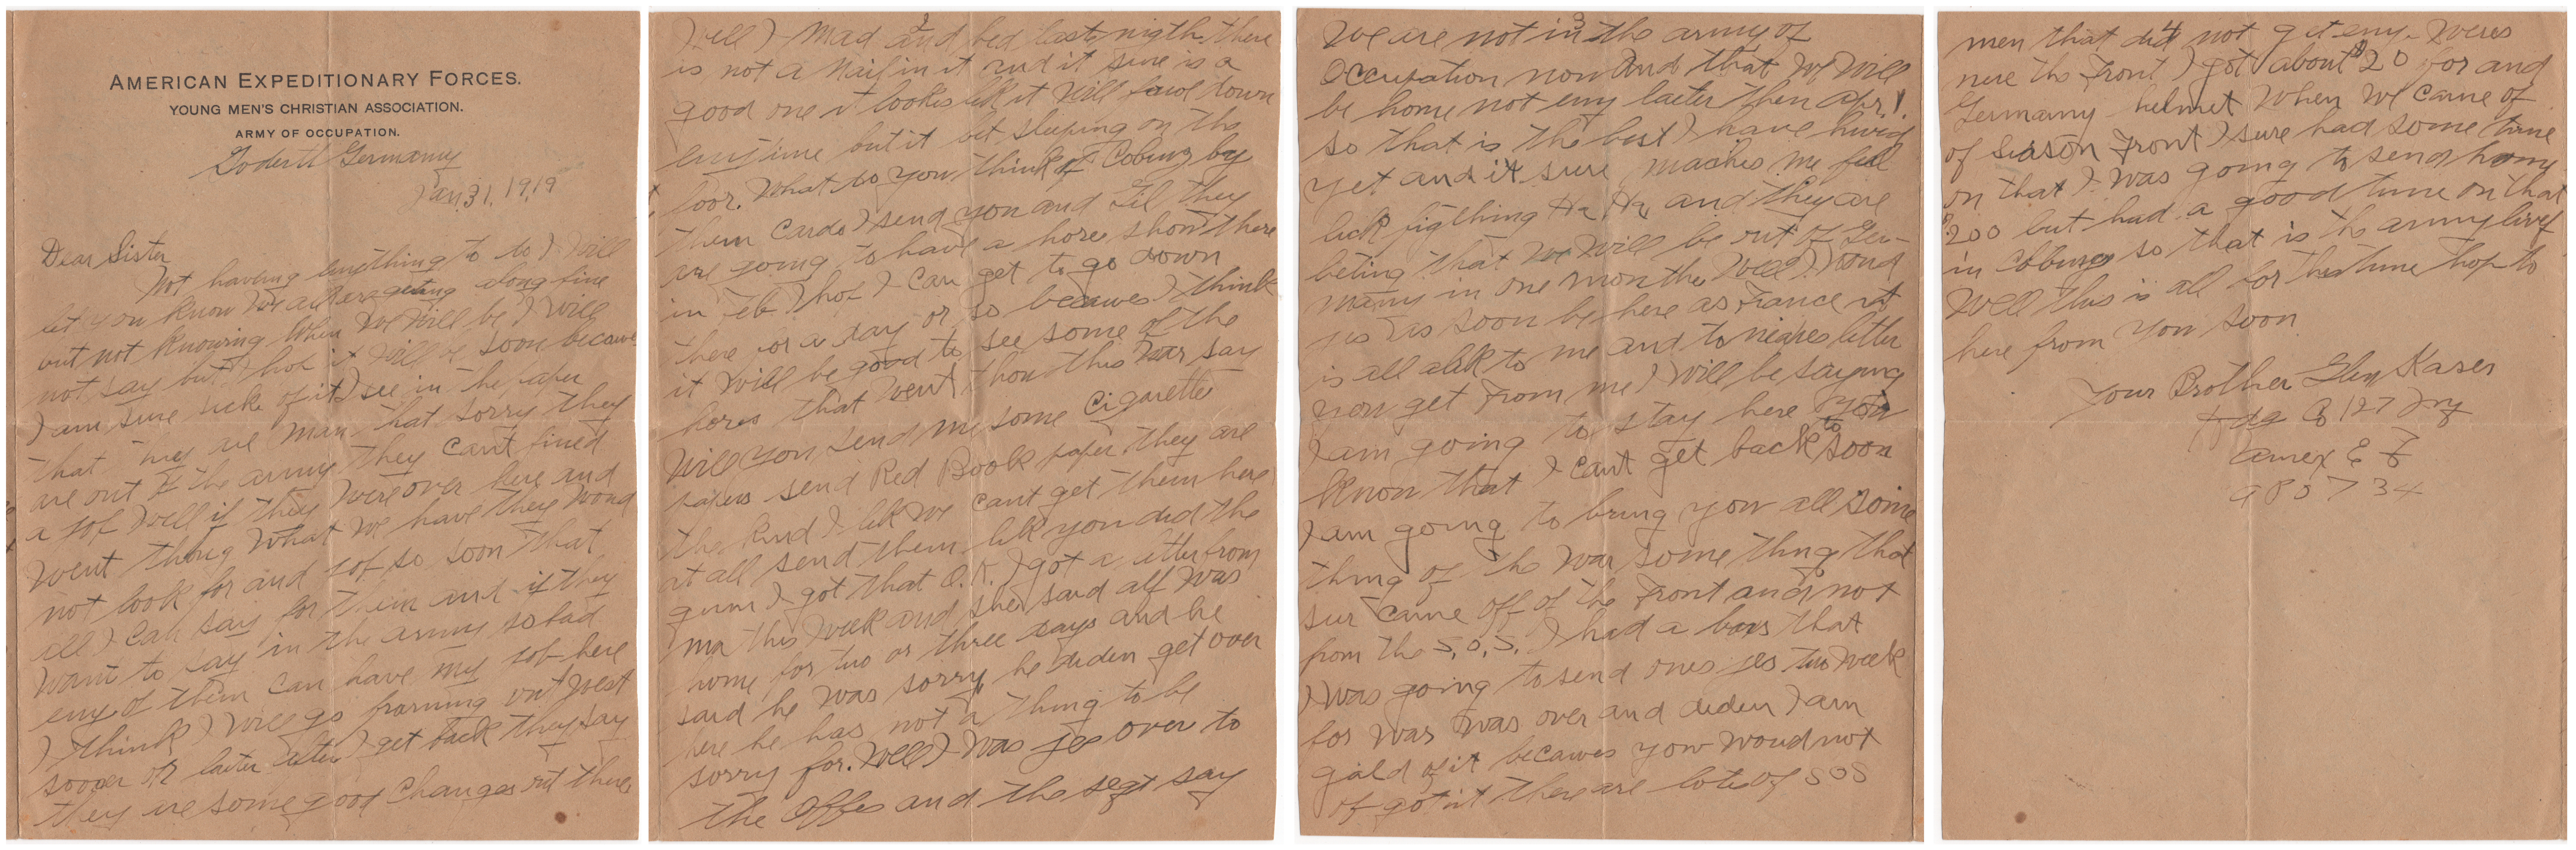 AMERICAN EXPEDITIONARY FORCES.
YOUNG MEN'S CHRISTIAN ASSOCIATION.
ARMY OF OCCUPATION.
Germany
Jan, 31, 1919
Dear Sister
Not having enything to do I Will
let you know We are geting along fine
but not knowing When We Will be I Will
not say but I hop it Will be soon because
I am sure sick of it I see in the paper
that they are Man that sorry they
are out of the army they cant fined
a job Well if they Were over here and
Went thoug What We have they Woud
not look for and job so soon that
all I can say for them and if they
Want to say in the army so bad
eny of them can have my job here
I think I Will go framing out West
sooner or laeter after I get back they say
they are some good changes out there
2
Well I mad and bed last nigth there
is not a nail in it and it sure is a
good one it lookes lik it Will faul down
enytime but it bet sleeping on the
floor. What do you think of Coburg by
them Cards I send you and Fil they
are going to have a hores show there
in Feb I hop I Can get to go down
there for a day or so becawes I think
it Will be good to see some of the
hores that Went thou this War say
Will you send me some Cigarette
papers send Red Book paper they are
the kind I lik We cant get them here
at all send them lik you did the
gum I got that O.K. I got a letter from
ma this Week and she said alf Was
home for two or three days and he
said he Was sorry he diden get over
here he has not a thing to be
sorry for. Well I Was jes over to
the Offes and the segt say
3
We are not in the army of
Occupation now and that We Will
be home not eny laeter then Apr. 1.
so that is the best I have hurd
yet and it sure mackes me fell
lick figthing Ha Ha and they are
beting that We Will be out of Ger-
many in one month Well I Woud
jes as soon be here as France it
is all alik to me and to nexes letter
you get from me I Will be saying
I am going to stay here you
know that I cant get back to soon
I am going to bring you all some
thing of the War some thing that
sur came off of the Front and not
from the S.O.S. I had a box that
I Was going to send ones jes two Week
for War Was over and diden I am
gald of it becawes you Woud not
of got it there are lots of SOS
4
men that did not get eny Weres
nere the Front I got about $20 for and
Germany helmet When We came of
of Front I sure had some time
on that I Was going to send home
$200 but had a good time on that
in Coburg so that is the army life
Well this is all for this time hop to
here from you soon
Your Brother Glen Kaser
Hdq Co 127 Inf
Amex E F